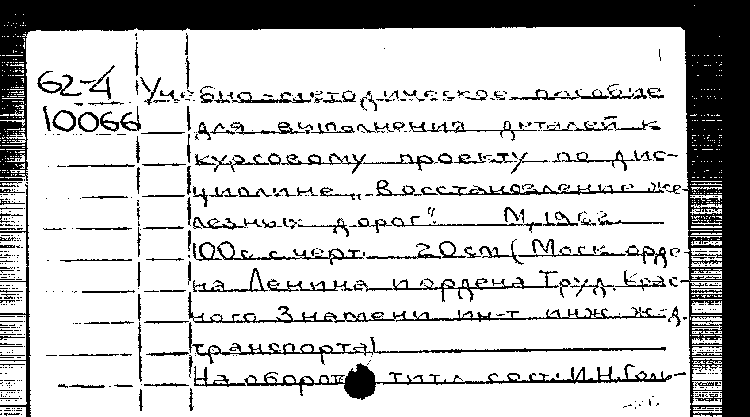 62-4 Учебно-методическое пособие
10066 для выполнения деталей к
курсовому проекту по дис-
циплине „Восстановление же-
лезных дорог". М, 1962.
100с с черт. 20см (Моск орде-
на Ленина и ордена Труд. Крас-
ного Знамени ин-т инж ж-д.
транспорта)
На оборот титл сост. И.Н.Голь-